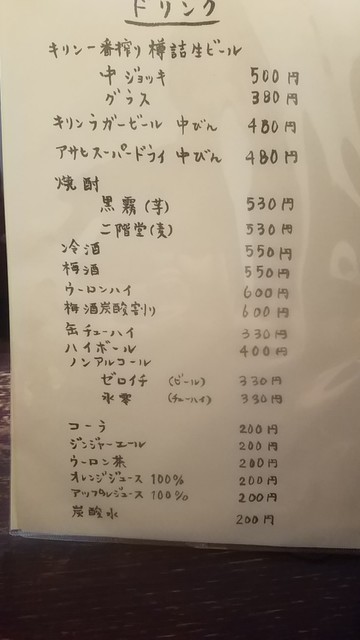 ドリンク
キリン一番搾り 樽詰生ビール
中ジョッキ 500円
グラス 380円
キリンラガービール 中びん 480円
アサヒスーパードライ 中びん 480円
焼酎
黒霧(芋) 530円
二階堂(麦) 530円
冷酒 550円
梅酒 550円
ウーロンハイ 600円
梅酒炭酸割り 600円
缶チューハイ 330円
ハイボール 400円
ノンアルコール
ゼロイチ (ビール) 330円
氷零 (チューハイ) 330円
コーラ 200円
ジンジャーエール 200円
ウーロン茶 200円
オレンジジュース 100% 200円
アップルジュース 100% 200円
炭酸水 200円